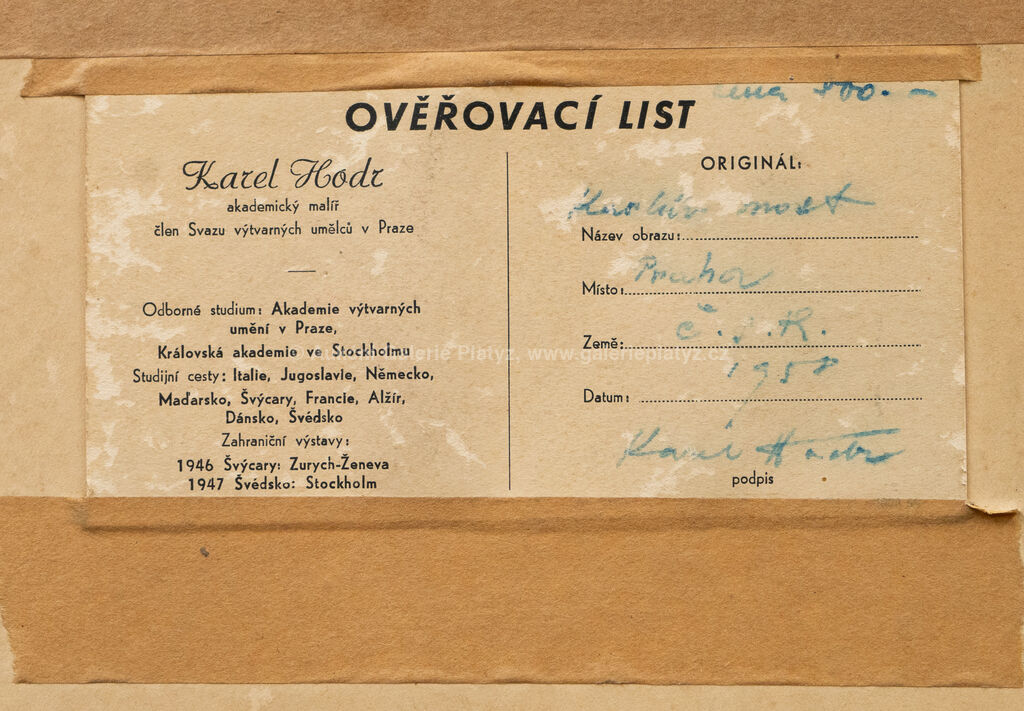 cena 800.-
OVĚŘOVACÍ LIST
Karel Hodr
akademický malíř
člen Svazu výtvarných umělců v Praze
Odborné studium: Akademie výtvarných
umění v Praze,
Královská akademie ve Stockholmu
Studijní cesty: Italie, Jugoslavie, Německo,
Maďarsko, Švýcary, Francie, Alžír,
Dánsko, Švédsko
Zahraniční výstavy:
1946 Švýcary: Zurych-Ženeva
1947 Švédsko: Stockholm
ORIGINÁL:
Karlův most
Název obrazu:
Praha
Místo:
Č.S.R.
Země:
1958
Datum:
Karel Hodr
podpis
Galerie Platyz, www.galerieplatyz.cz